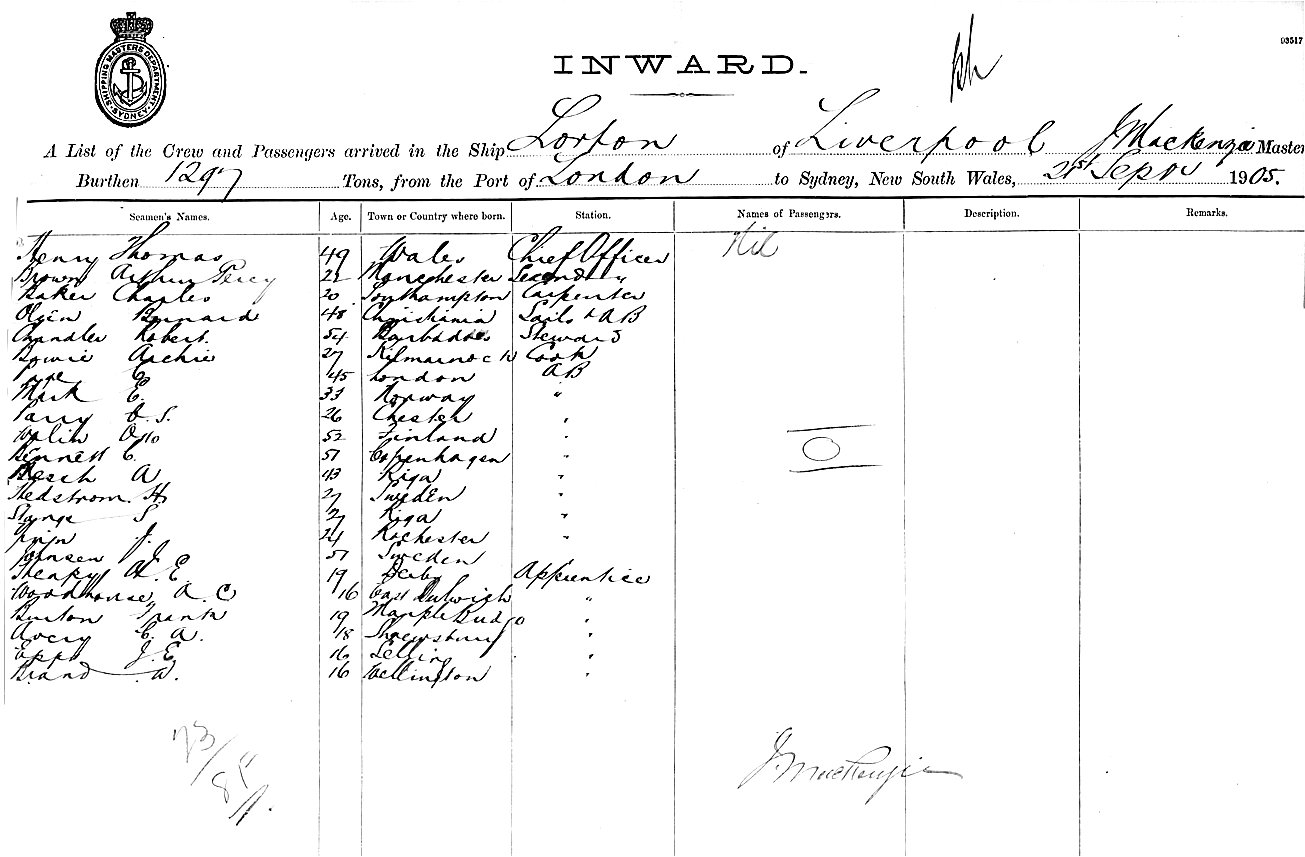 03517
INWARD.
SHIPPING MASTERS DEPARTMENT. SYDNEY
A List of the Crew and Passengers arrived in the Ship Lorton of Liverpool J Mackenzie Master
Burthen 1297 Tons, from the Port of London to Sydney, New South Wales, 21st Sepr 1905.
Seamen's Names. Age. Town or Country where born. Station. Names of Passengers. Description. Remarks.
Henry Thomas 49 Wales Chief Officer Nil
Brown Arthur Percy 22 Manchester Second "
Baker Charles 20 Southampton Carpenter
Olsen Bernard 48 Christiania Sails & AB
Chandler Robert 54 Barbados Steward
Bowie Archie 27 Kilmarnock Cook
C 45 London AB
E. 33 Norway "
Parry O. S. 26 Chester "
Otto 52 Finland "
Bennett C. 51 Copenhagen "
A 43 Riga "
Hedstrom H 27 Sweden "
Stange S 27 Riga "
J. 24 Rochester "
Johnsen J. 51 Sweden
H. E. 19 Derby Apprentice
Woodhouse A. C 16 East Dulwich "
Burton Frank 19 "
Avery C. A. 18 Shrewsbury "
Epps J. E. 16 Selling "
Brand W. 16 Wellington "
J Mackenzie